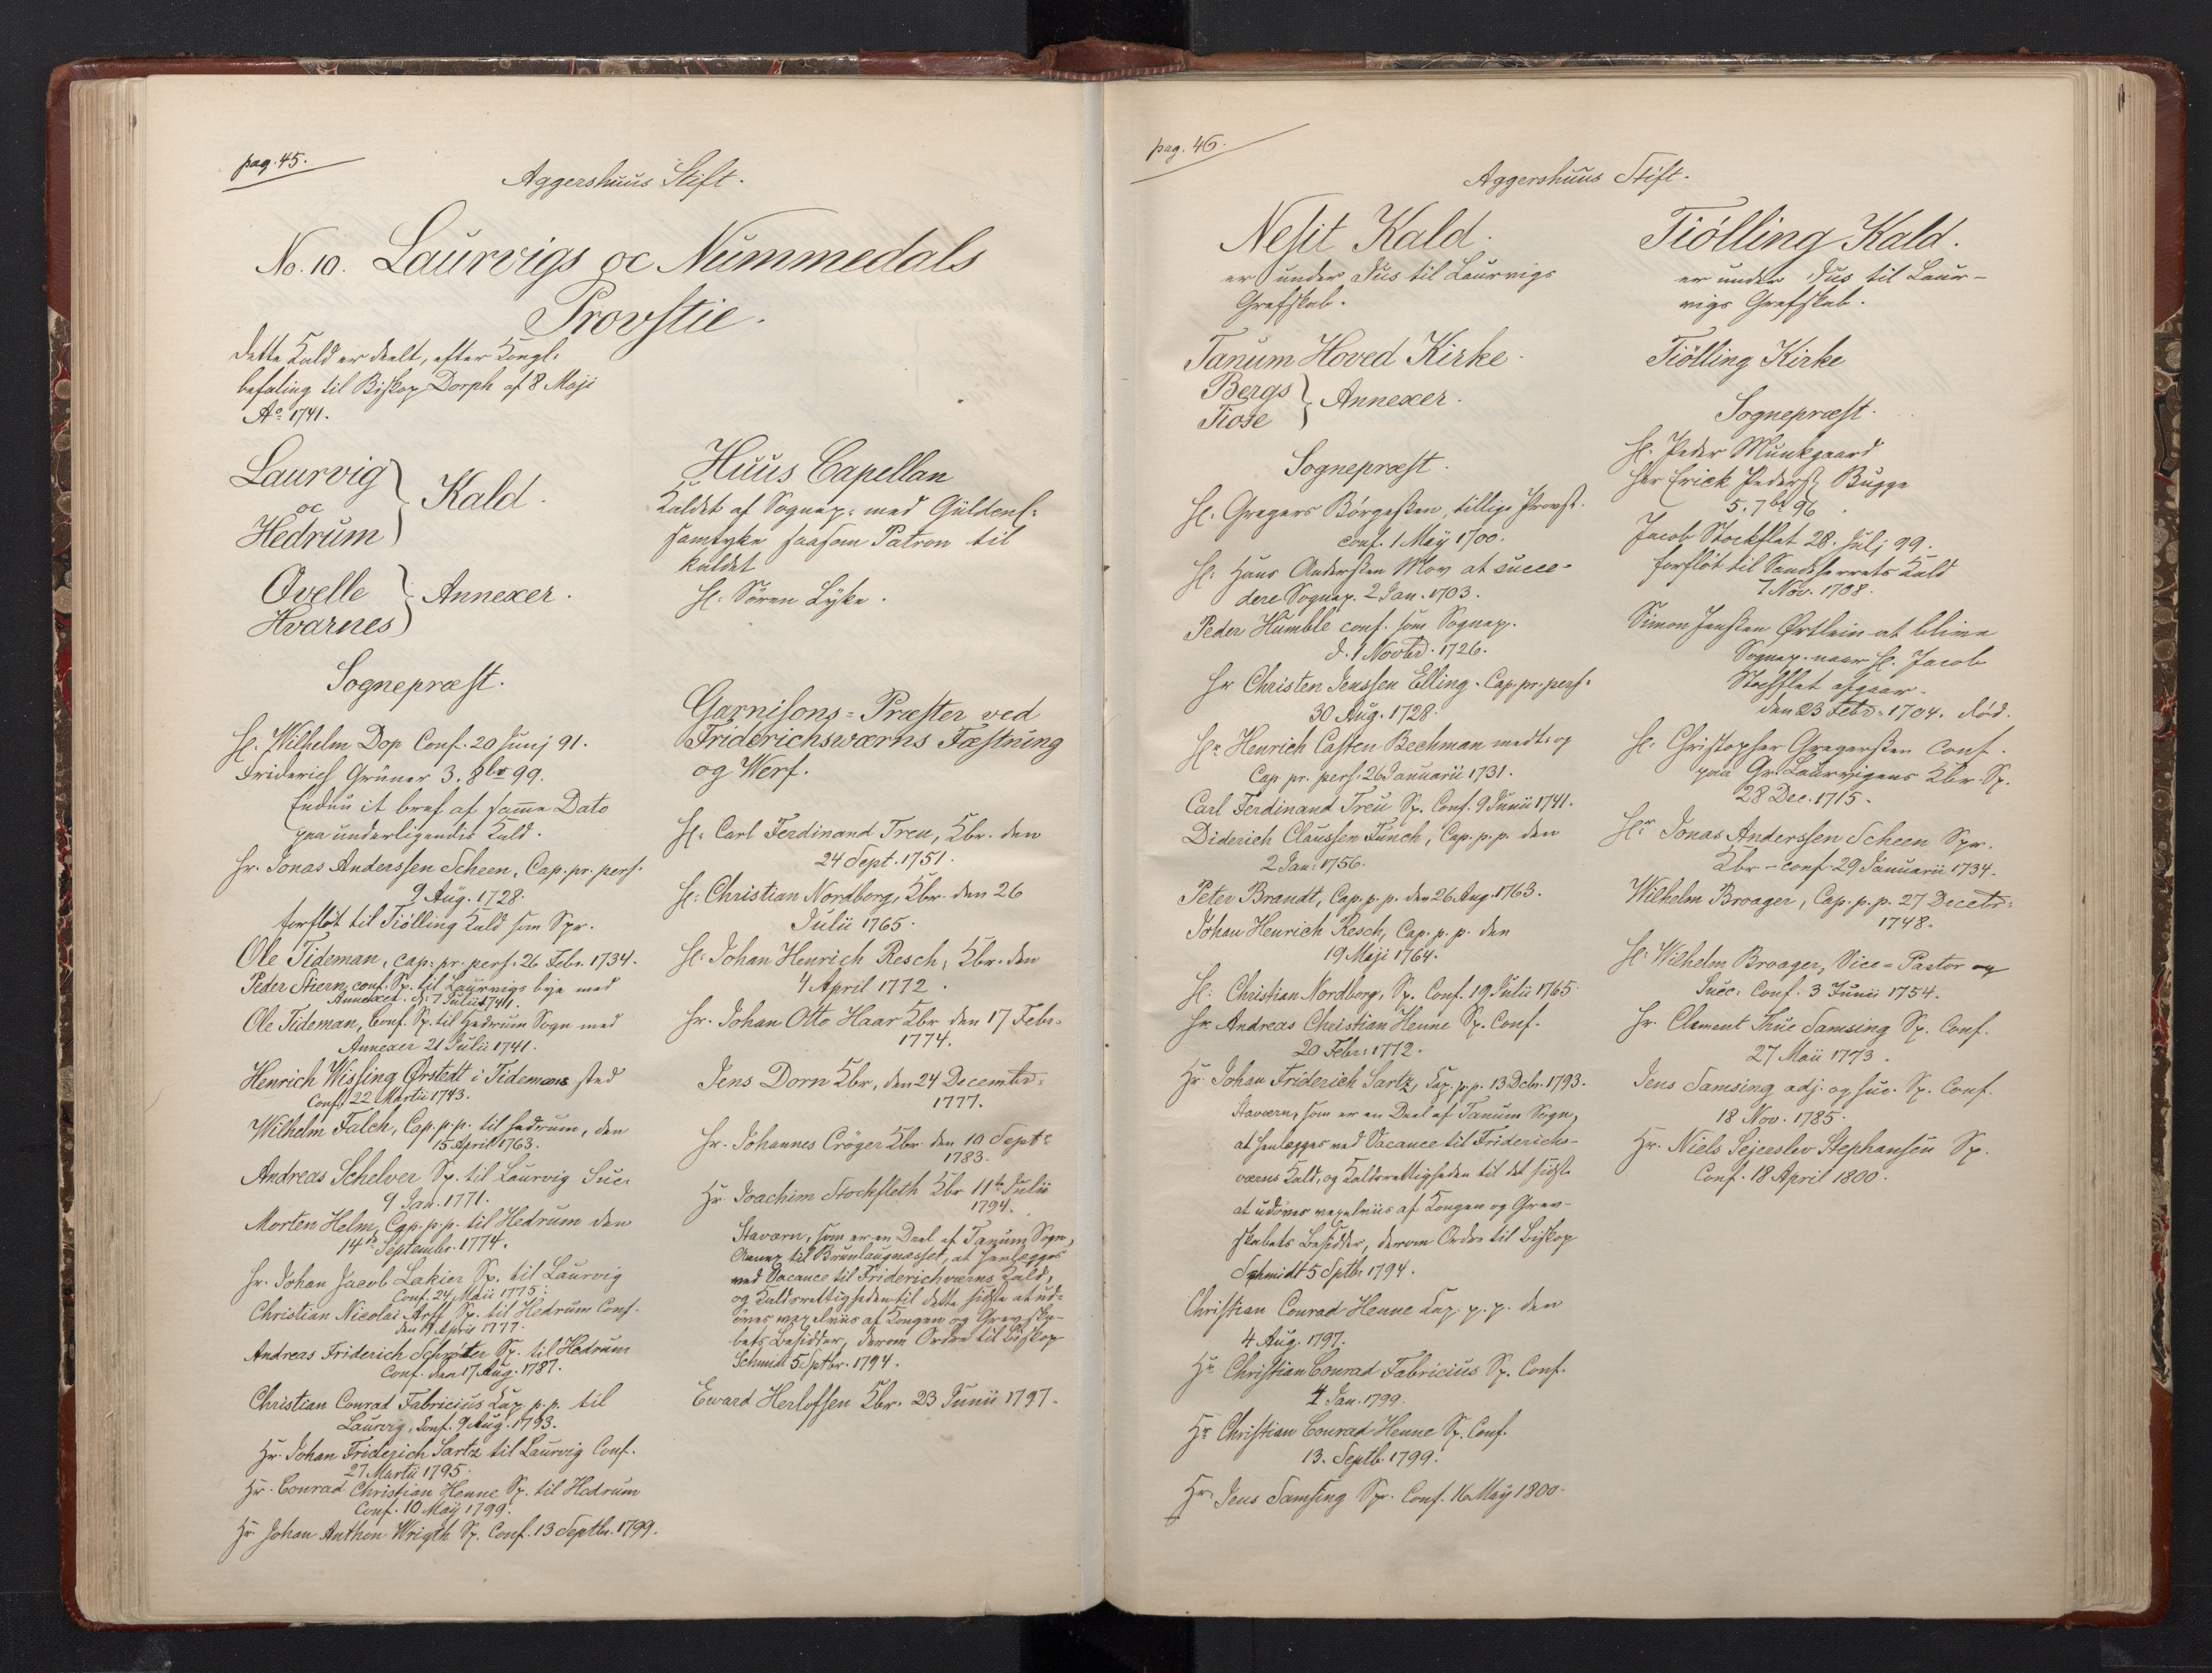 pag. 45.
Aggershuus Stift.
No. 10. Laurvigs oc Nummedals
Provstie.
Dette Kald er deelt, efter Kongl:
befaling til Biskop Dorph af 8 Maji
Aº 1741.
Laurvig
oc
Hedrum
Kald.
Qvelle
Hvarnes
Annexer.
Sognepræst.
H. Wilhelm Dop Conf. 20 Junj 91.
Friderich Grüner 3. 8br 99.
Endnu it bref af samme Dato
paa underligendis Kald.
Hr. Jonas Anderssen Scheen, Cap. pr. pers.
9 Aug. 1728.
forflöt til Tiølling Kald som Spr.
Ole Tideman, cap: pr. pers: 26 Febr. 1734.
Peder Stiern, conf. Sp. til Laurvigs bye med
Annexet. d. 7 Julii 1741.
Ole Tideman, Conf. Sp. til Hedrum Sogn med
Annexer 21 Julii 1741.
Henrich Wissing Ørstedt i Tidemans sted
Conf. 22 Martii 1743.
Wilhelm Falch, Cap. p. p. til Hedrum, den
15 April 1763.
Andreas Schelver Sp. til Laurvig Suc:
9 Jan. 1771.
Morten Helm, Cap. p. p. til Hedrum den
14de Septembr. 1774.
Hr. Johan Jacob Lakier Sp. til Laurvig
Conf. 24 Maii 1775.
Christian Nicolai Arff Sp. til Hedrum Conf.
den 9 April 1777.
Andreas Friderich Schrøter Sp. til Hedrum
Conf. den 17 Aug. 1787.
Christian Conrad Fabricius Kap. p. p. til
Laurvig, Conf. 9 Aug. 1793.
Hr. Johan Friderich Sartz til Laurvig Conf.
27 Martii 1795.
Hr. Conrad Christian Henne Sp. til Hedrum
Conf. 10 Maÿ 1799.
Hr Johan Anthon Wrigth Sp. Conf. 13 Septbr. 1799.
Huus Capellan
Kaldet af Sognep: med Güldenl:
samtyke saasom Patron til
kaldet
H. Sören Lÿke.
Garnisons-Præster ved
Friderichswærns Fæstning
og Werf.
H: Carl Ferdinand Treu, Kbr. den
24 Sept. 1751.
H: Christian Nordborg, Kbr. den 26
Julii 1765.
H: Johan Henrich Resch, Kbr. den
4 April 1772.
Hr. Johan Otto Haar Kbr den 17 Febr:
1774.
Jens Dorn Kbr, den 24 Decembr:
1777.
Hr. Johannes Crøger Kbr den 10 Sept:
1783.
Hr Joachim Stockfleth Kbr 11te Julii
1794.
Staværn, som er en Deel af Tanum Sogn,
Annex til Brunlaugnæsset, at henlegges
ved Vacance til Friderichværns Kald,
og Kaldsrettigheden til dette sidste at ud-
øves vexelviis af Kongen og Grevska-
bets besidder, derom Ordre til Biskop
Schmidt 5 Sptbr. 1794.
Eward Herlofsen Kbr. 23 Junii 1797.
pag. 46.
Aggershuus Stift.
Nesit Kald.
er under Jus til Laurvigs
Grefskab.
Tanum Hoved Kirke.
Bergs
Tiose
Annexer.
Sognepræst.
H. Gregers Börgesen, tillige Provst.
conf. 1 Maÿ 1700.
H: Hans Andersen Mov at succe-
dere Sognep. 2 Jan. 1703.
Peder Humble conf. som Sognep.
d. 1 Novbr. 1726.
Hr Christen Jenssen Elling. Cap. pr. pers:
30 Aug. 1728.
Hr Henrich Casten Bechman medt: og
Cap pr. pers: 26 Januarii 1731.
Carl Ferdinand Treu Sp. Conf. 9 Junii 1741.
Diderich Claussen Funch, Cap. p. p. den
2 Jan: 1756.
Peter Brandt, Cap. p. p. den 26 Aug. 1763.
Johan Henrich Resch, Cap. p. p. den
19 Maji 1764.
H: Christian Nordborg, Sp. Conf. 19 Julii 1765.
Hr. Andreas Christian Henne Sp. Conf.
20 Febr: 1772.
Hr Johan Friderich Sartz, Kap. p. p. 13 Dcbr. 1793.
Staværn, som er en Deel af Tanum Sogn,
at henlegges ved Vacance til Friderichs-
værns Kald, og Kaldsrettigheden til det sidste
at udøves vexelviis af Kongen og Grev-
skabets besidder, derom Ordre til Biskop
Schmidt 5 Sptbr 1794.
Christian Conrad Henne Kap. p. p. den
4 Aug. 1797.
Hr Christian Conrad Fabricius Sp. Conf.
4 Jan. 1799.
Hr Christian Conrad Henne Sp. Conf.
13. Septb. 1799.
Hr. Jens Samsing Spr. Conf. 16 Maÿ 1800.
Tiölling Kald.
er under Jus til Laur-
vigs Grefskab.
Tiölling Kirke
Sognepræst.
H. Peder Munkgaard
Her Erick Peders: Bugge
5. 7br 96.
Jacob Stockflet 28. Julj 99.
forflöt til Sandeherrets Kald
7 Nov. 1708.
Simon Jensen Ørtlein at blive
Sognep. naar H. Jacob
Stockflet afgaar.
den 23 Febr. 1704. död.
H: Christopher Gregersen Conf.
paa Gr. Laurvigens Kbr. Sp.
28 Dec. 1715.
Hr Jonas Anderssen Scheen Spr.
Kbr - conf. 29 Januarii 1734.
Wilhelm Broager, Cap. p. p. 27 Decebr:
1748.
H: Wilhelm Broager, Vice-Pastor og
Succ: Conf. 3 Junii 1754.
Hr. Clement Thue Samsing Sp. Conf.
27 Maii 1773.
Jens Samsing adj. og suc. Sp. Conf.
18 Nov. 1785.
Hr. Niels Sejerslev Stephansen Sp.
Conf. 18 April 1800.